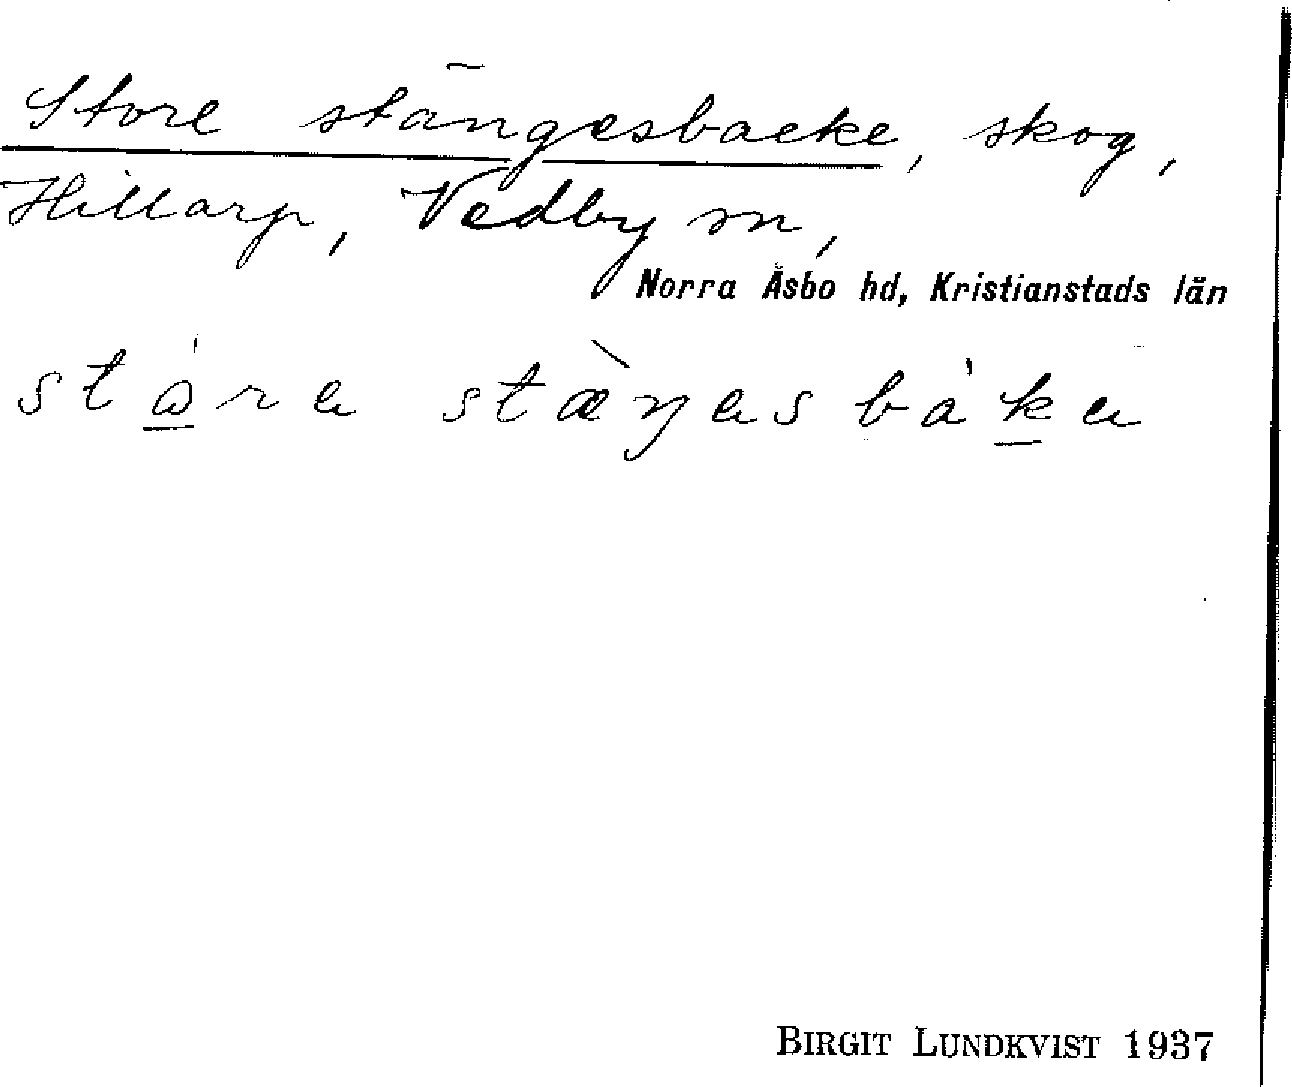 Store stängesbacke, skog,
Hillarp, Vedby sn,
Norra Åsbo hd, Kristianstads län
stǻ̱re stæ̀ŋes báḵe
BIRGIT LUNDKVIST 1937